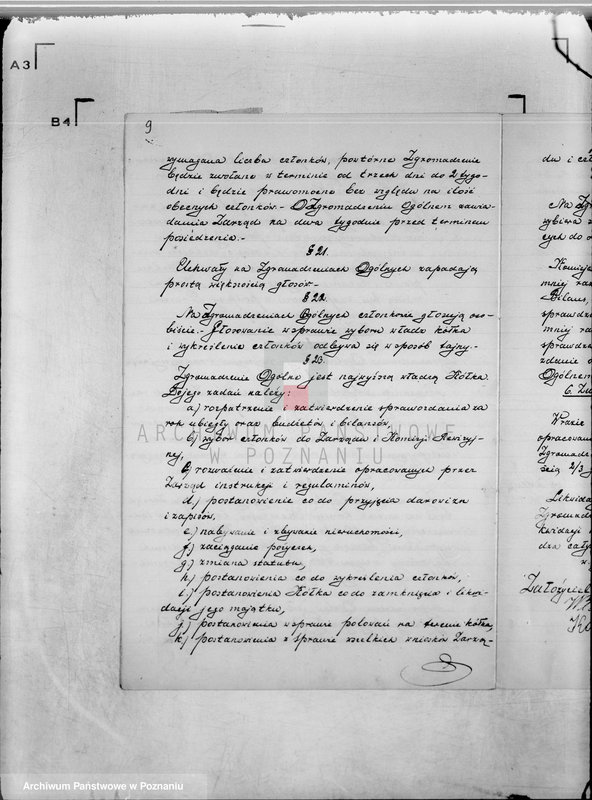 A3
B4
9
wymagana liczba członków, powtórne Zgromadzenie
będzie zwołane w terminie od trzech dni do 2 tygo-
dni i będzie prawomocne bez względu na ilość
obecnych członków.- O Zgromadzeniu Ogólnem zawia-
damia Zarząd na dwa tygodnie przed terminem
posiedzenia.-
§ 21.
Uchwały na Zgromadzeniach Ogólnych zapadają
prostą większością głosów.-
§ 22.
Na Zgromadzeniach Ogólnych członkowie głosują oso-
biście.- Głosowanie w sprawie wyboru władz kółka
i wykreślenie członków odbywa się w sposób tajny.-
§ 23
Zgromadzenie Ogólne jest najwyższą władzą Kółka.
Do jego zadań należy:
a) rozpatrzenie i zatwierdzenie sprawozdania za
rok ubiegły oraz budżetów i bilansów,
b) wybór członków do Zarządu i Komisji Rewizyj-
nej,
c) rozważanie i zatwierdzenie opracowanych przez
Zarząd instrukcji i regulaminów,
d) postanowienie co do przyjęcia darowizn
i zapisów,
e) nabywanie i zbywanie nieruchomości,
f) zaciąganie pożyczek,
g) zmiana statutu,
h) postanowienia co do wykreślenia członków,
i) postanowienia Kółka co do zamknięcia i likwi-
dacji jego majątku,
j) postanowienia w sprawie polowań na terenie kółka,
k) postanowienia w sprawie wszelkich wniosków Zarzą-
du i czł
Na Zgr
wybiera z
cych do o
Komisja
mniej raz
Bilans,
sprawdza
mniej raz
sprawdza
zdanie o
Ogólnem
opracowan
Zgromadze
ścią 2/3
Likwida
Zgromadz
kwidacji
dza cały
Założyciel
ARCHIWUM PAŃSTWOWE
W POZNANIU
Archiwum Państwowe w Poznaniu